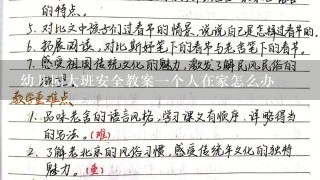 的特点。
5. 对比文中孩子们过春节的情景,说说自己是怎样过春节的。
6. 拓展阅读,对比斯好笔下的春节与老舍笔下的春节。
7. 感受祖国传统文化的魅力,激发了解民风民俗的
幼儿园大班安全教案一个人在家怎么办
教学重难点
1. 品味老舍的语言风格,学习课文有顺序、详略得当
的写法。(难)
2. 了解老北京的风俗习惯,感受传统年文化的独特
魅力。(重)